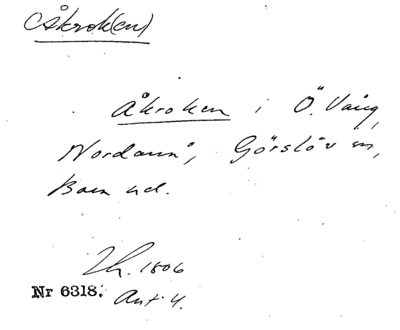 Åkrok(en)
Åkroken i Ö. Vång,
Nordanå, Görslöv sn,
Bara hd.
Lh. 1806
Nr 6318. Ant. 4.